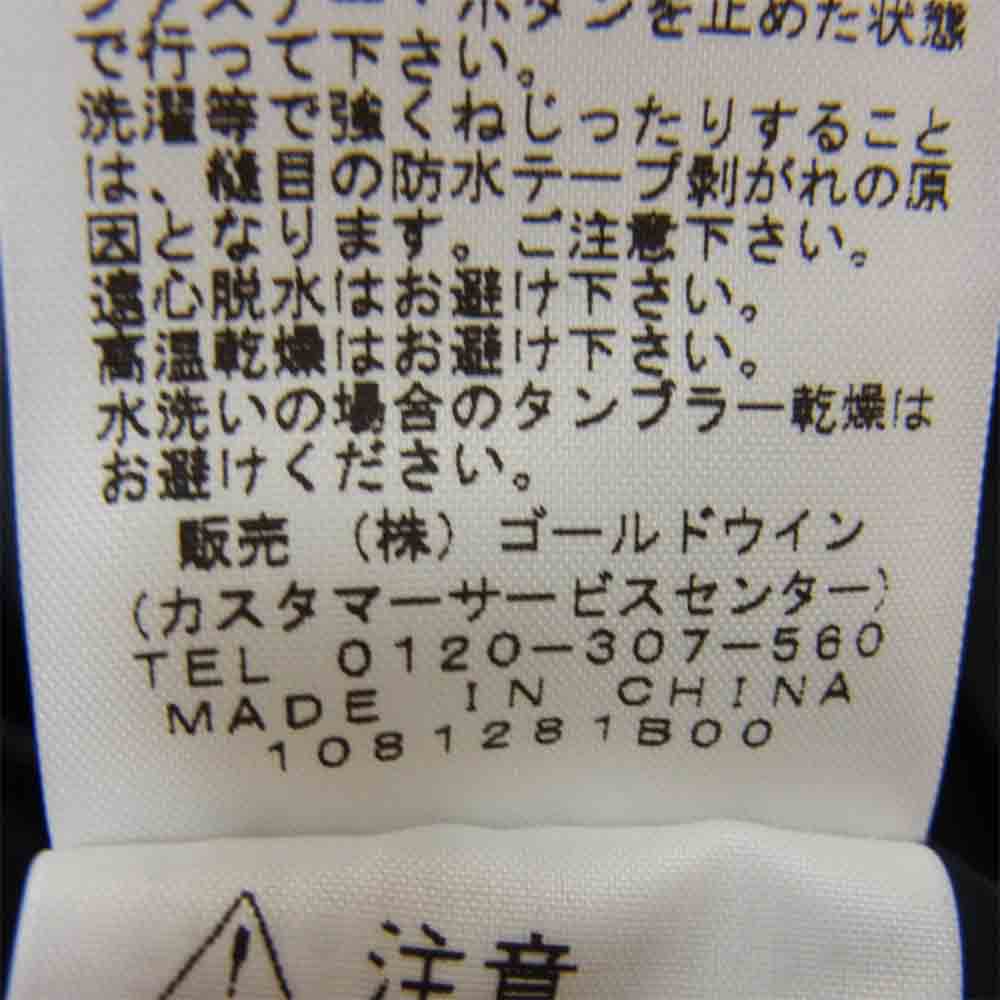 ファスナー・ボタンを止めた状態
で行って下さい。
洗濯等で強くねじったりすること
は、縫目の防水テープ剥がれの原
因となります。ご注意下さい。
遠心脱水はお避け下さい。
高温乾燥はお避け下さい。
水洗いの場合のタンブラー乾燥は
お避けください。
販売 (株) ゴールドウイン
(カスタマーサービスセンター)
TEL 0120-307-560
MADE IN CHINA
1081281800
注意